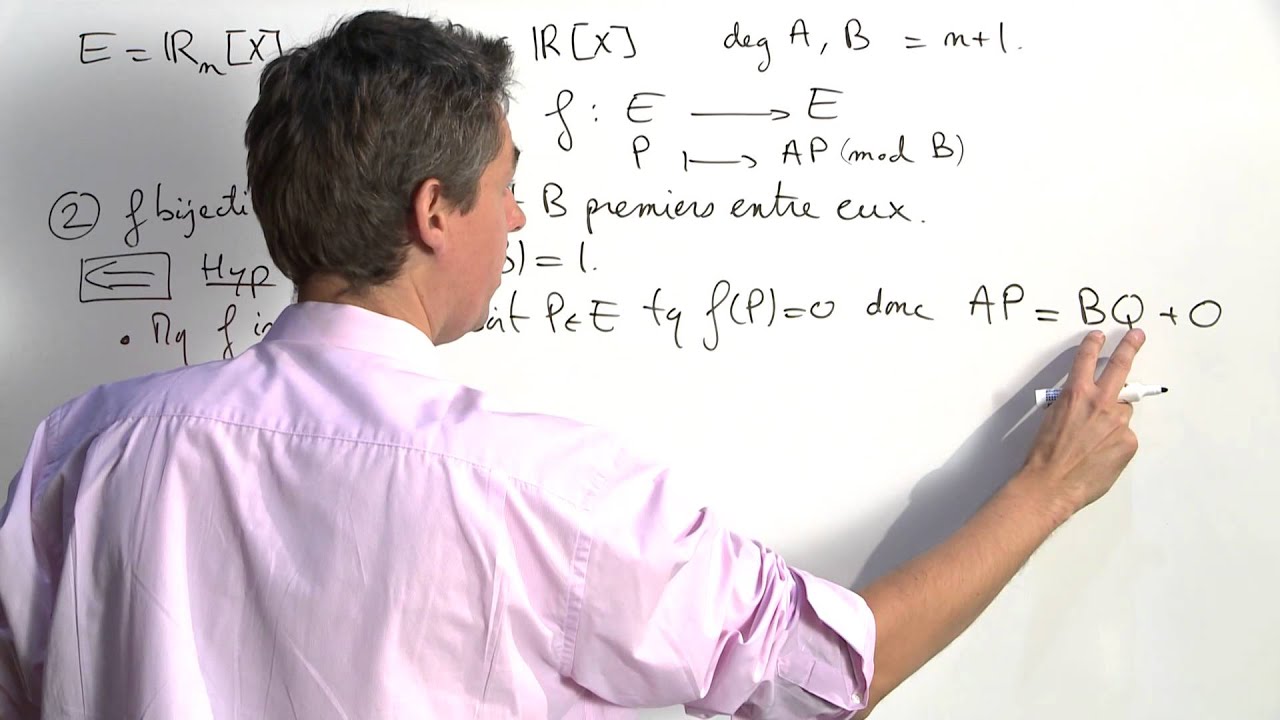 E = ℝn[X] = ℝ[X] deg A, B = n+1.
f : E ⟶ E
P ⟼ AP (mod B)
② f bijecti B premiers entre eux.
⟸ Hyp ) = 1.
• Mq f P∈E tq f(P)=0 donc AP = BQ + 0